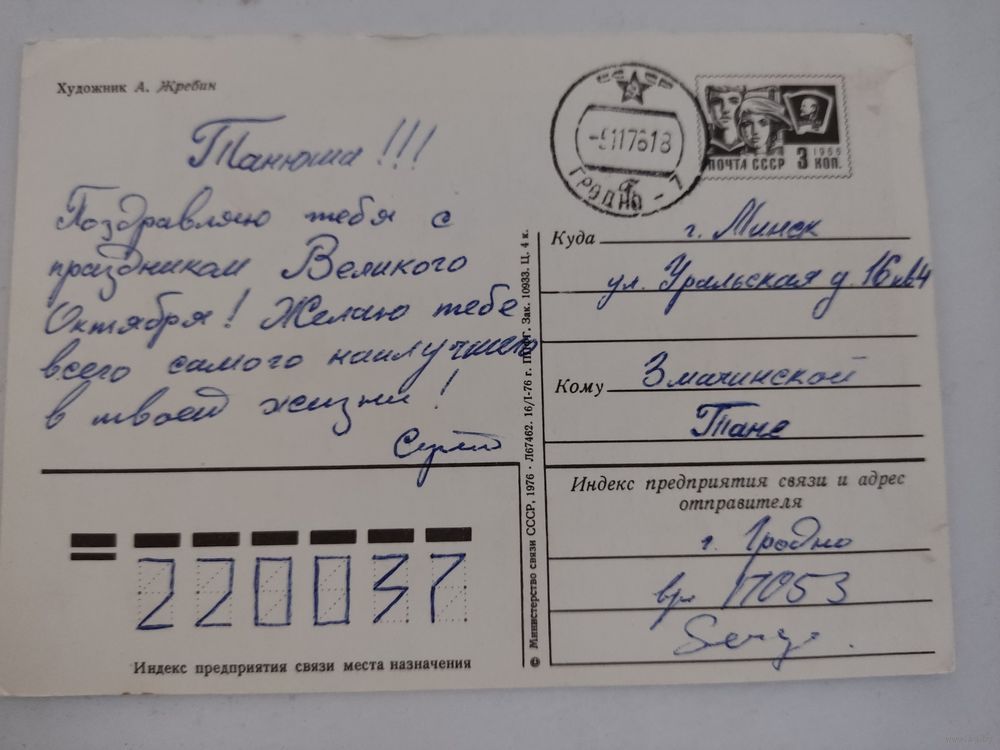 Художник А. Жребин
СССР
-5117618
ГРОДНО-7
1966
ПОЧТА СССР 3 КОП.
Танюша!!!
Поздравляю тебя с
праздником Великого
Октября! Желаю тебе
всего самого наилучшего
в твоей жизни!
Куда г. Минск
ул. Уральская д. 16 кв 4
Кому Змачинской
Тане
Индекс предприятия связи и адрес
отправителя
г. Гродно
17053
Serge
220037
Индекс предприятия связи места назначения
© Министерство связи СССР, 1976 · Л67462. 16/I-76 г. Зак. 10933. Ц. 4 к.